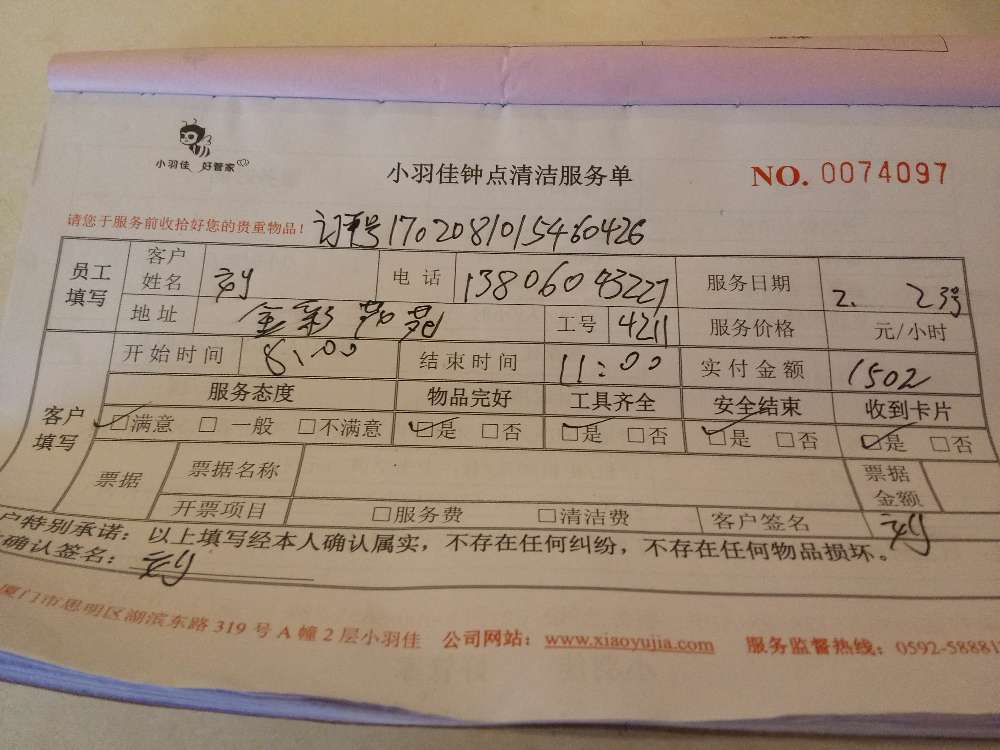 小羽佳 好管家
小羽佳钟点清洁服务单
NO. 0074097
请您于服务前收拾好您的贵重物品！ 订单号170208101545460426
员工填写 客户姓名 刘 电话 13806043227 服务日期 2. 23号
地址 金彩 苑 工号 4211 服务价格 元/小时
客户填写 开始时间 8:00 结束时间 11:00 实付金额 1502
服务态度 物品完好 工具齐全 安全结束 收到卡片
☑满意 □一般 □不满意 ☑是 □否 ☑是 □否 ☑是 □否 ☑是 □否
票据 票据名称 票据金额
开票项目 □服务费 □清洁费 客户签名 刘
户特别承诺：以上填写经本人确认属实，不存在任何纠纷，不存在任何物品损坏。
确认签名：刘
厦门市思明区湖滨东路319号A幢2层小羽佳 公司网站：www.xiaoyujia.com 服务监督热线：0592-58881